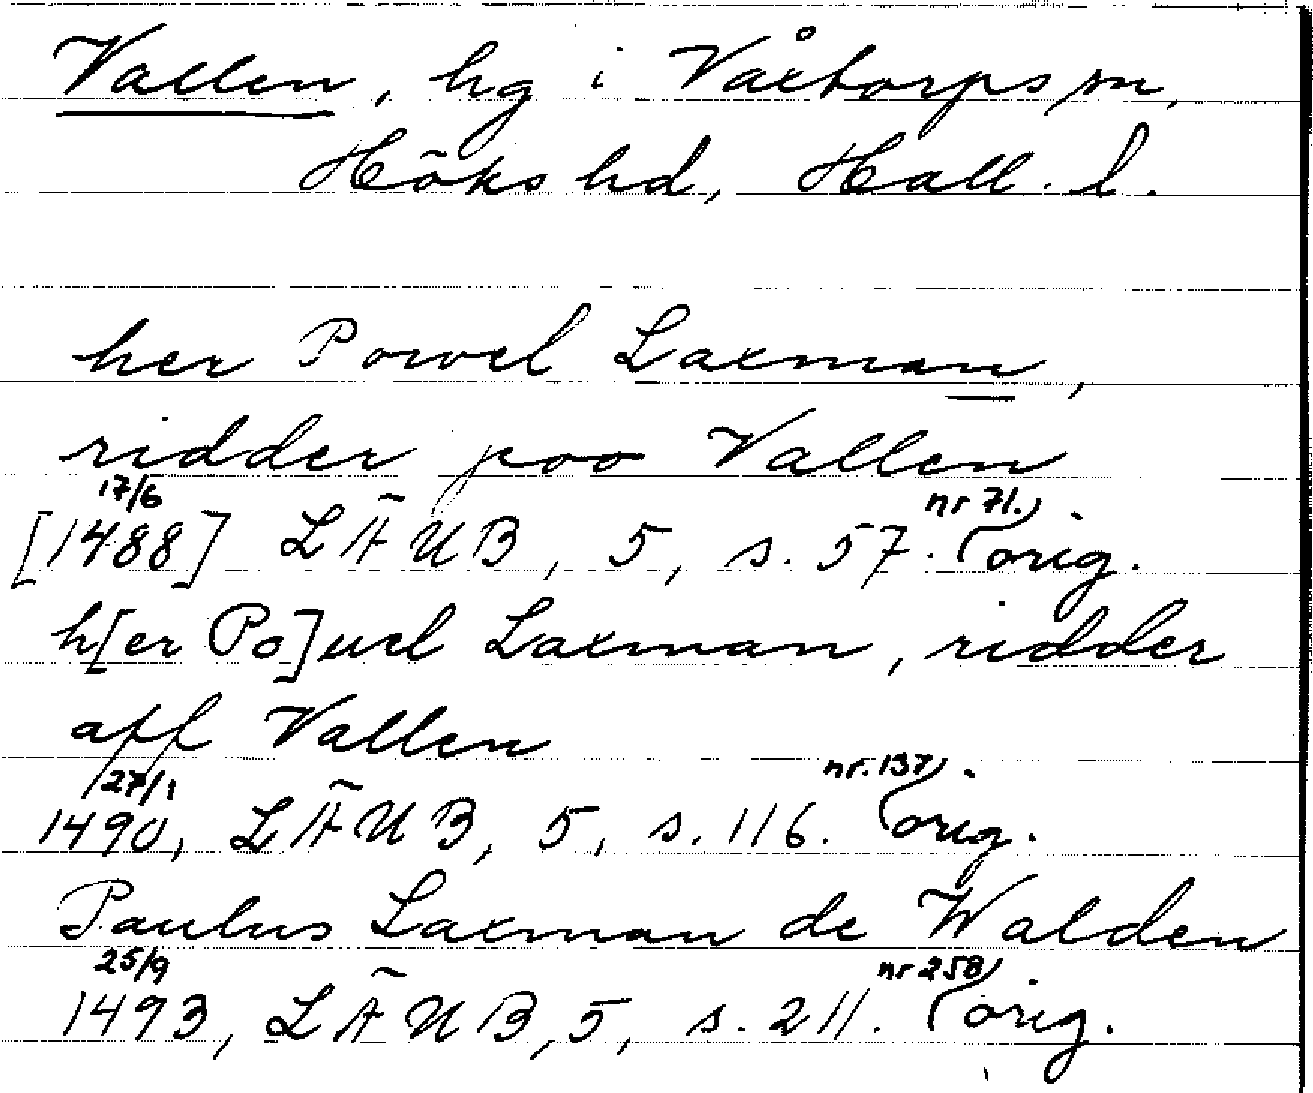 Vallen, hg i Våxtorps sn,
Höks hd, Hall. l.
her Powel Laxman,
ridder poo Vallen
17/6 nr 71.
[1488] LÄUB, 5, s. 57. orig.
h[er Po]uel Laxman, ridder
aff Vallen
27/1 nr. 137.
1490, LÄUB, 5, s. 116. orig.
Paulus Laxman de Walden
25/9 nr 258.
1493, LÄUB, 5, s. 211. orig.